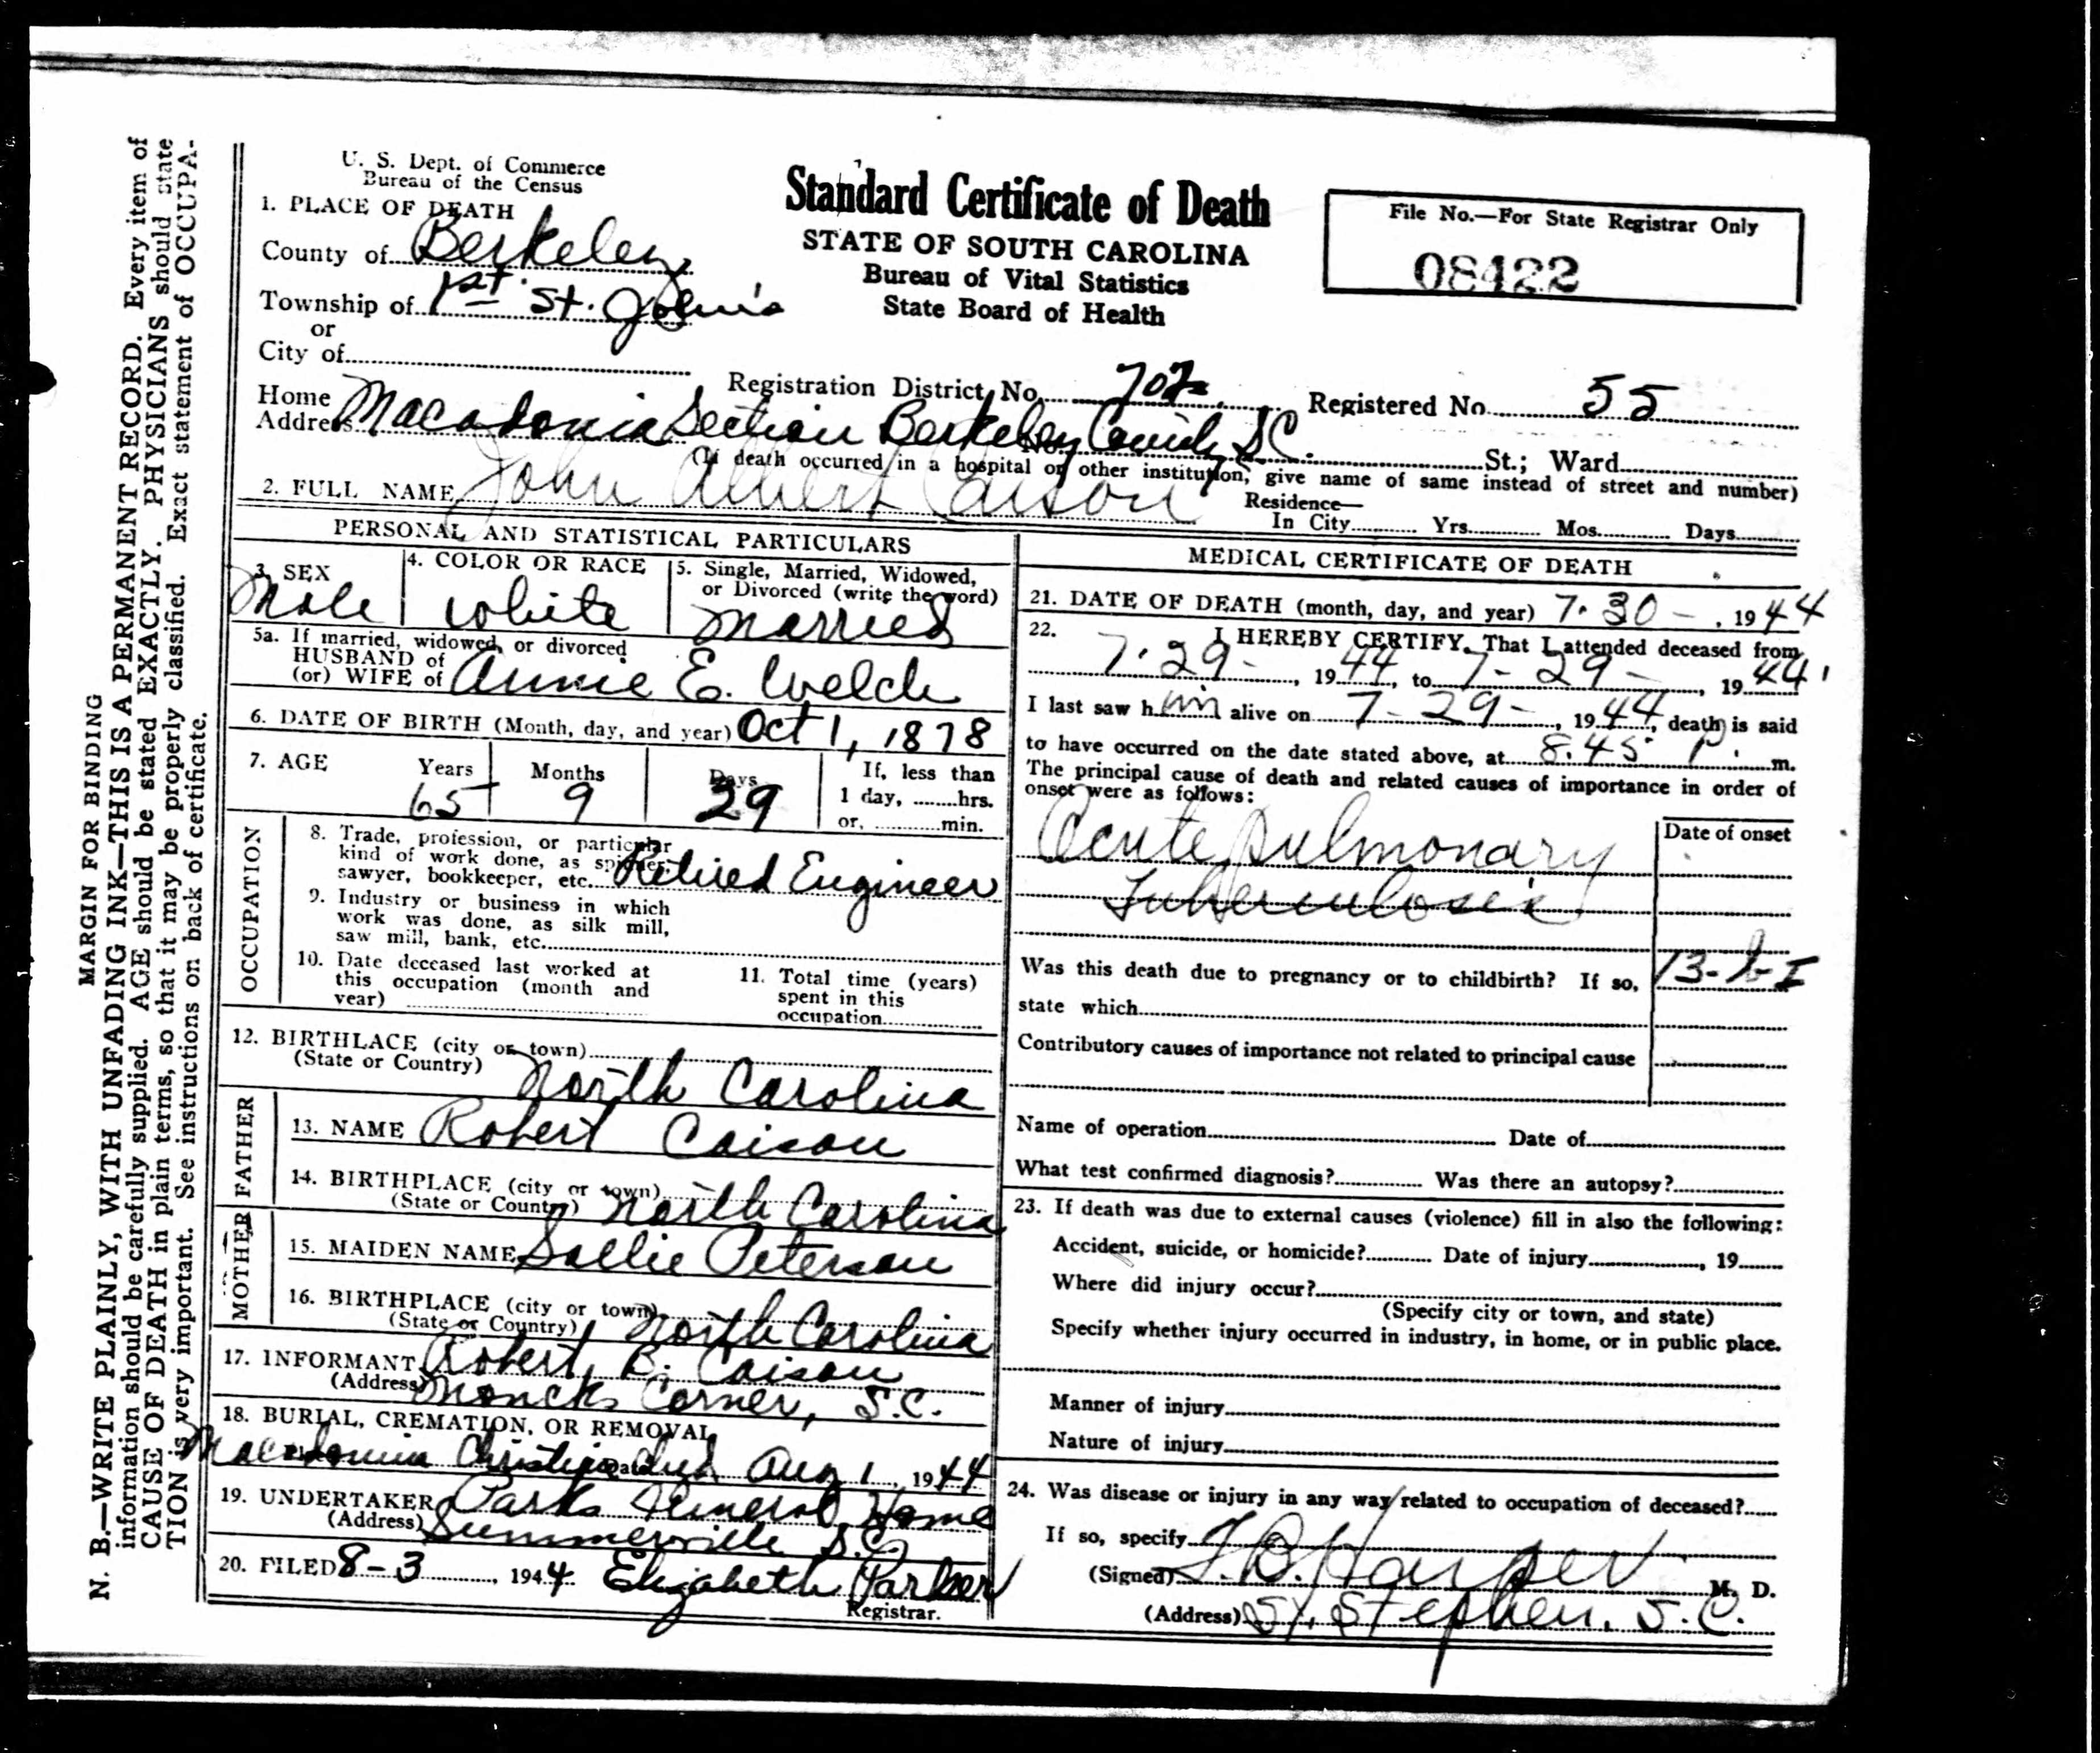 MARGIN FOR BINDING
N. B.—WRITE PLAINLY, WITH UNFADING INK—THIS IS A PERMANENT RECORD. Every item of
information should be carefully supplied. AGE should be stated EXACTLY. PHYSICIANS should state
CAUSE OF DEATH in plain terms, so that it may be properly classified. Exact statement of OCCUPA-
TION is very important. See instructions on back of certificate.
U. S. Dept. of Commerce
Bureau of the Census
Standard Certificate of Death
STATE OF SOUTH CAROLINA
Bureau of Vital Statistics
State Board of Health
File No.—For State Registrar Only
08422
1. PLACE OF DEATH
County of Berkeley
Township of 1st St. John's
or
City of
Registration District No. 702
Registered No. 55
Home
Address Macadonia Section Berkeley County S.C.
No. St.; Ward
(If death occurred in a hospital or other institution, give name of same instead of street and number)
2. FULL NAME John Albert Caison
Residence—
In City Yrs. Mos. Days
PERSONAL AND STATISTICAL PARTICULARS
3. SEX
Male
4. COLOR OR RACE
White
5. Single, Married, Widowed,
or Divorced (write the word)
Married
5a. If married, widowed, or divorced
HUSBAND of
(or) WIFE of Annie E. Welch
6. DATE OF BIRTH (Month, day, and year) Oct 1, 1878
7. AGE Years Months Days If, less than
65 9 29 1 day, hrs.
or, min.
OCCUPATION
8. Trade, profession, or particular
kind of work done, as spinner,
sawyer, bookkeeper, etc. Retired Engineer
9. Industry or business in which
work was done, as silk mill,
saw mill, bank, etc.
10. Date deceased last worked at
this occupation (month and
year)
11. Total time (years)
spent in this
occupation
12. BIRTHLACE (city or town)
(State or Country) North Carolina
FATHER
13. NAME Robert Caison
14. BIRTHPLACE (city or town)
(State or Country) North Carolina
MOTHER
15. MAIDEN NAME Sallie Peterson
16. BIRTHPLACE (city or town)
(State or Country) North Carolina
17. INFORMANT Robert B. Caison
(Address) Moncks Corner, S.C.
18. BURIAL, CREMATION, OR REMOVAL
Macedonia Christian Date Aug 1, 1944
19. UNDERTAKER Parks Funeral Home
(Address) Summerville S.C.
20. FILED 8-3, 1944 Elizabeth Parker
Registrar.
MEDICAL CERTIFICATE OF DEATH
21. DATE OF DEATH (month, day, and year) 7-30-, 1944
22. I HEREBY CERTIFY, That I attended deceased from
7-29-, 1944, to 7-29-, 1944
I last saw him alive on 7-29-, 1944, death is said
to have occurred on the date stated above, at 8:45 P. m.
The principal cause of death and related causes of importance in order of
onset were as follows:
Date of onset
Acute Pulmonary
Tuberculosis
Was this death due to pregnancy or to childbirth? If so, 13-b-I
state which
Contributory causes of importance not related to principal cause
Name of operation Date of
What test confirmed diagnosis? Was there an autopsy?
23. If death was due to external causes (violence) fill in also the following:
Accident, suicide, or homicide? Date of injury, 19
Where did injury occur?
(Specify city or town, and state)
Specify whether injury occurred in industry, in home, or in public place.
Manner of injury
Nature of injury
24. Was disease or injury in any way related to occupation of deceased?
If so, specify
(Signed) Harper M. D.
(Address) St. Stephen, S.C.